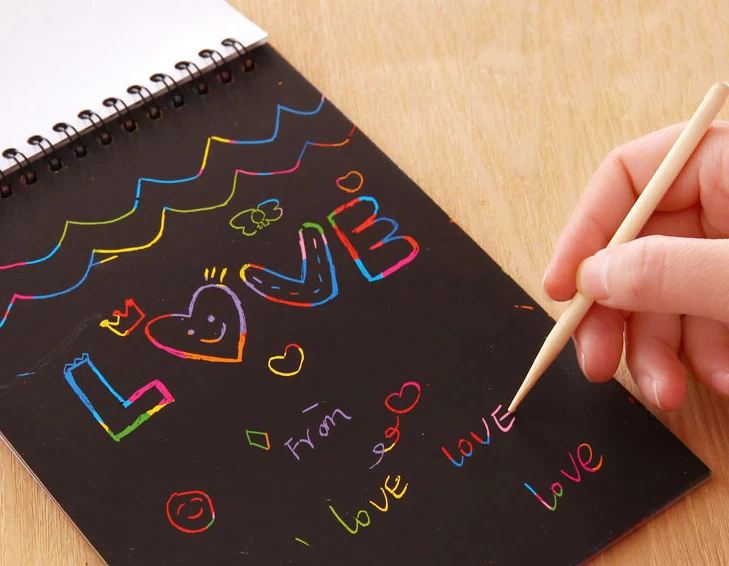 LOVE
From
LOVE
love
love